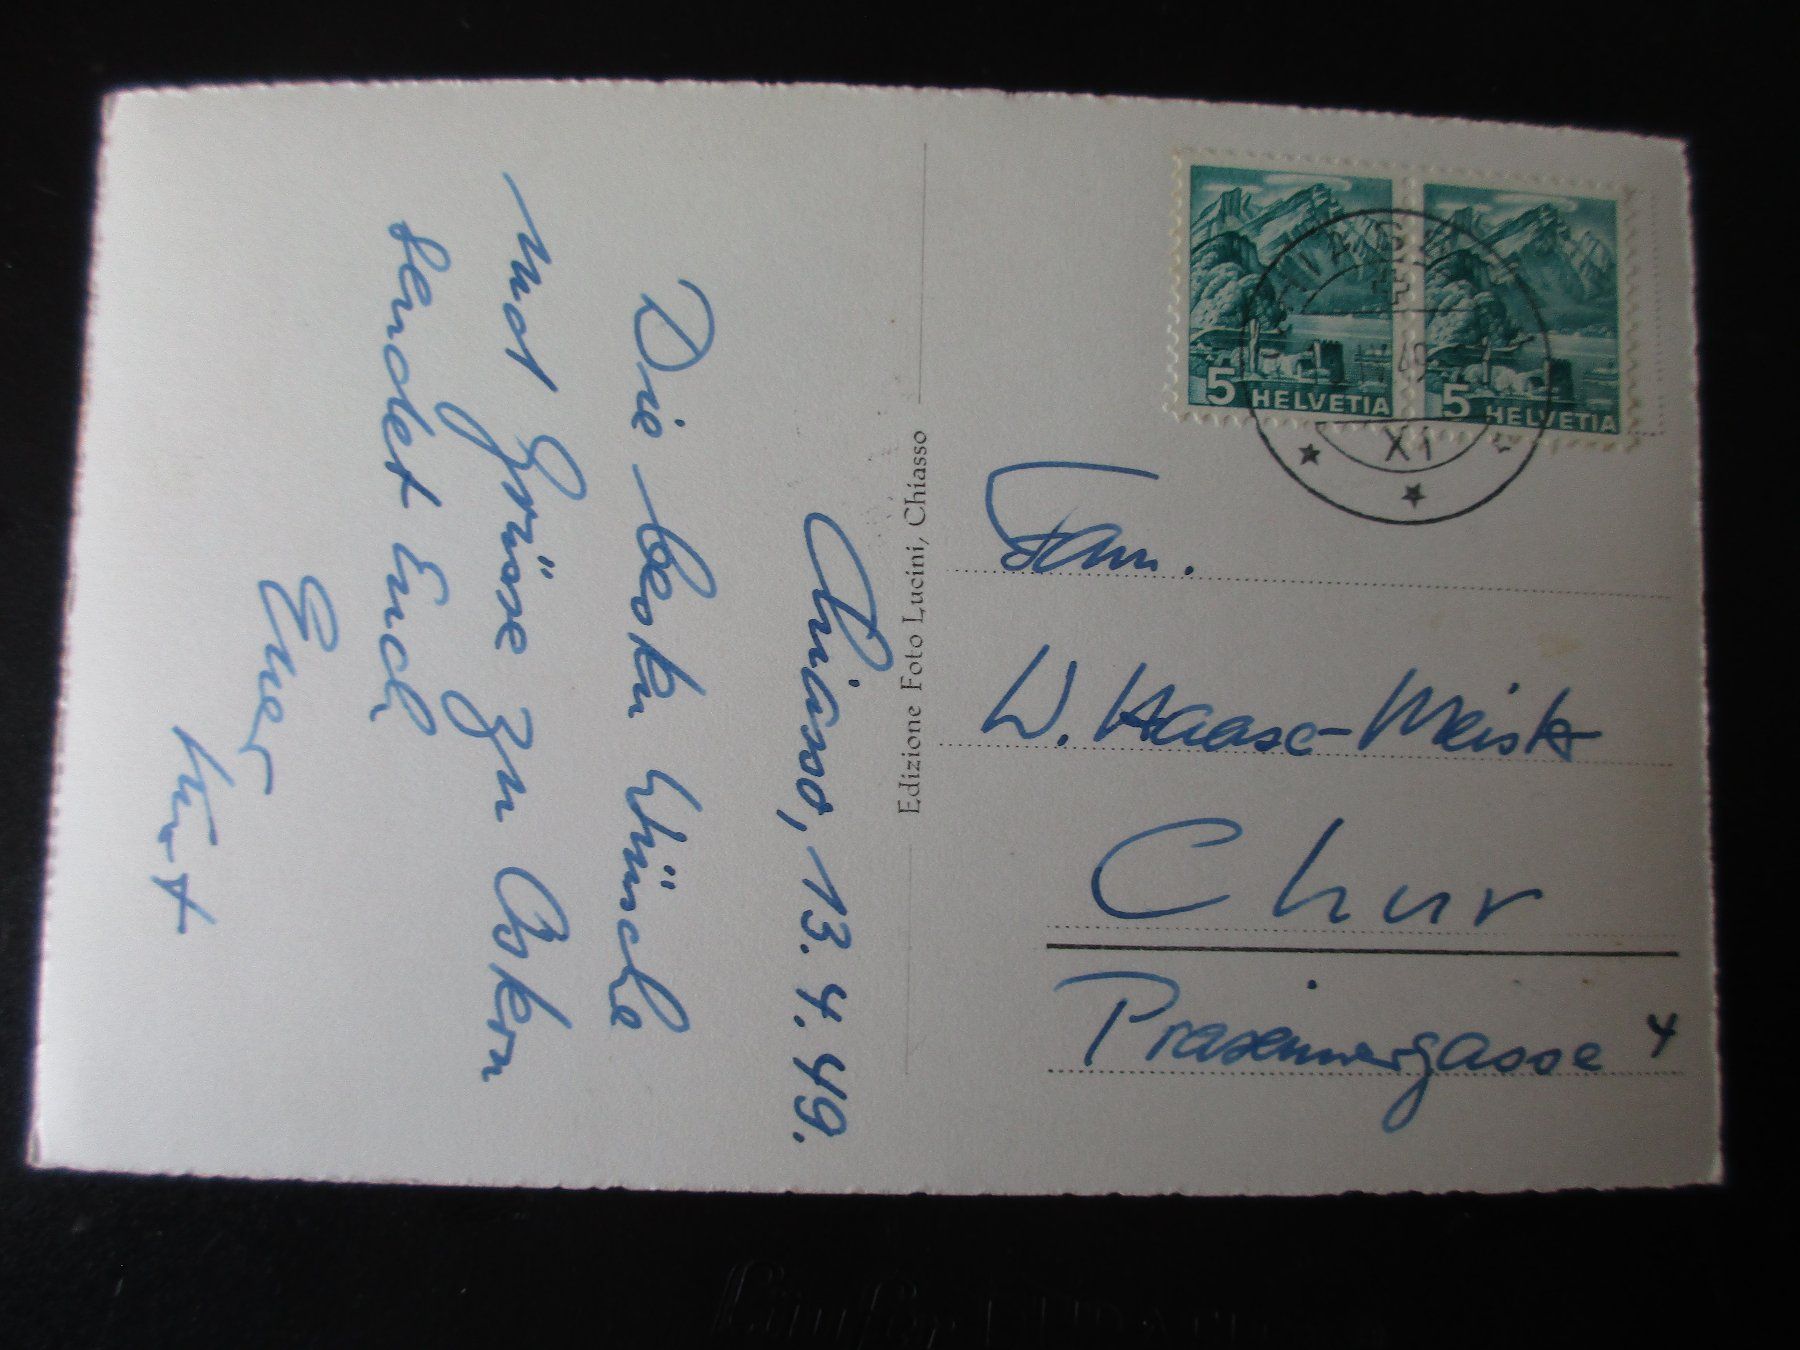 Chiasso, 13.4.49.
Die besten Wünsche
und Grüsse zu Ostern
sendet Euch
Euer
Kurt
Edizione Foto Lucini, Chiasso
5 HELVETIA
5 HELVETIA
XI
Fam.
W. Haase-Meister
Chur
Prasserinergasse 4